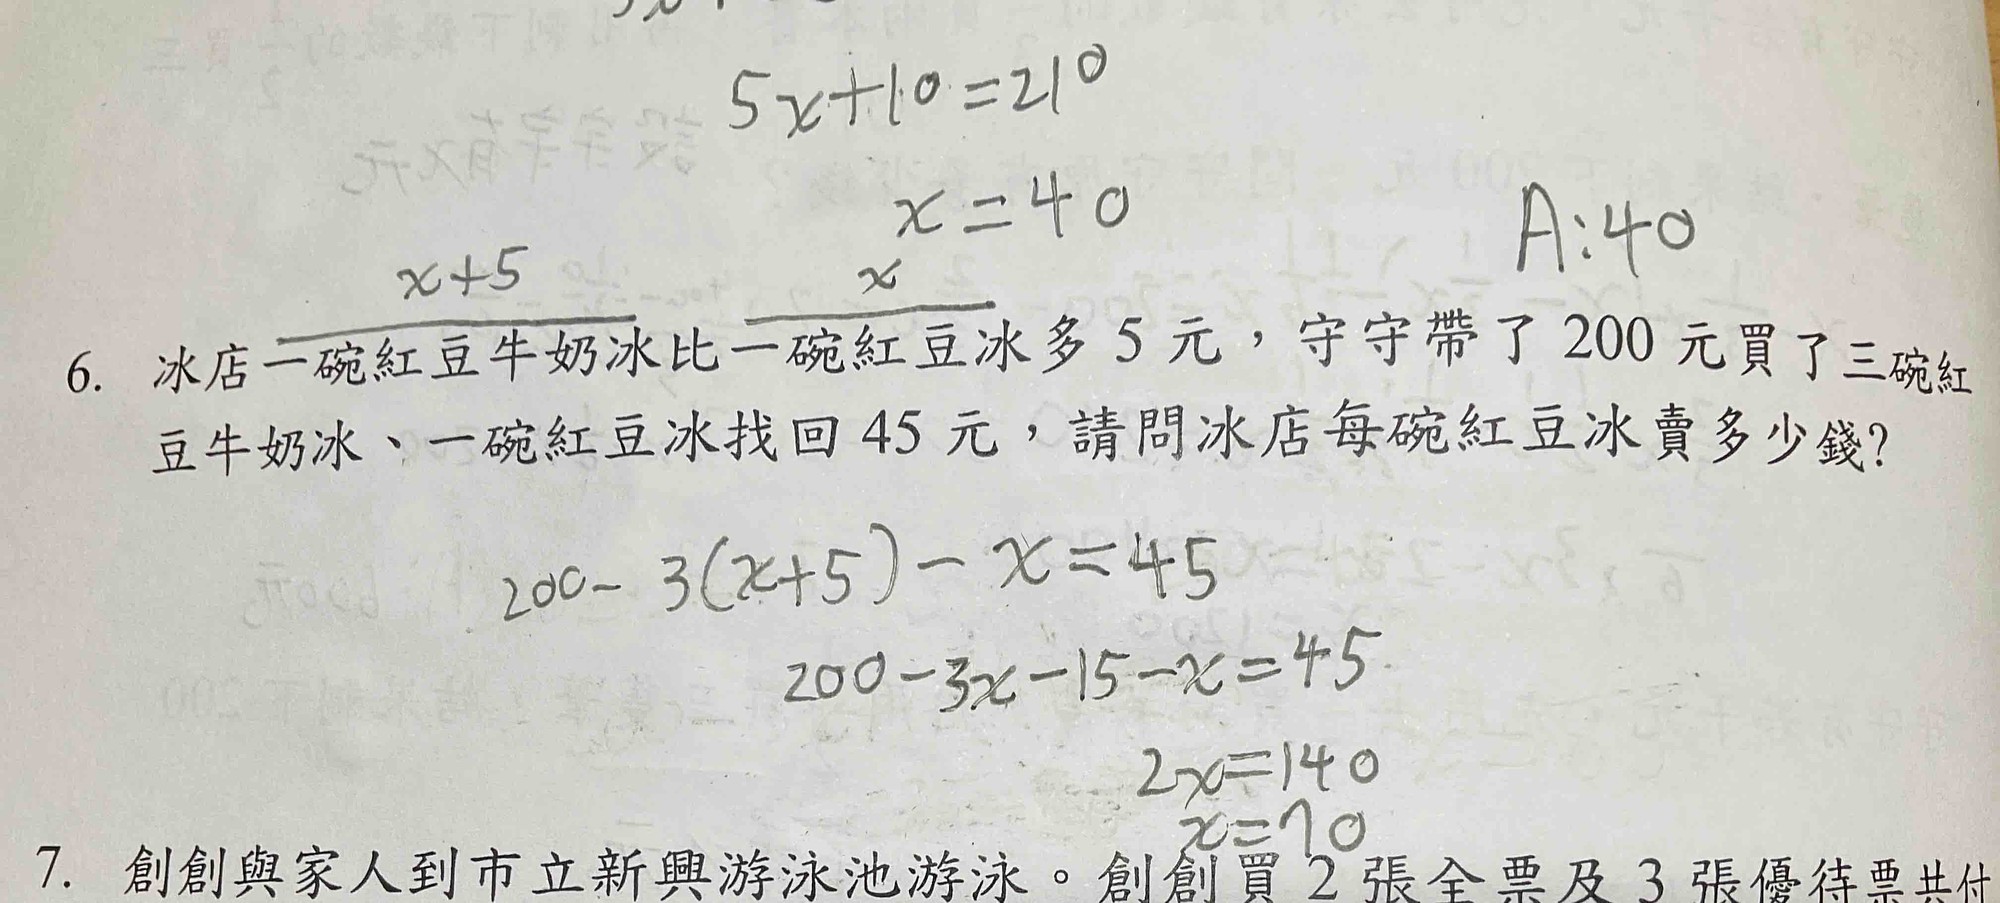 5x+10=210
x=40
A:40
x+5
x
6. 冰店一碗紅豆牛奶冰比一碗紅豆冰多 5 元，守守帶了 200 元買了三碗紅
豆牛奶冰、一碗紅豆冰找回 45 元，請問冰店每碗紅豆冰賣多少錢?
200-3(x+5)-x=45
200-3x-15-x=45
2x=140
x=70
7. 創創與家人到市立新興游泳池游泳。創創買 2 張全票及 3 張優待票共付